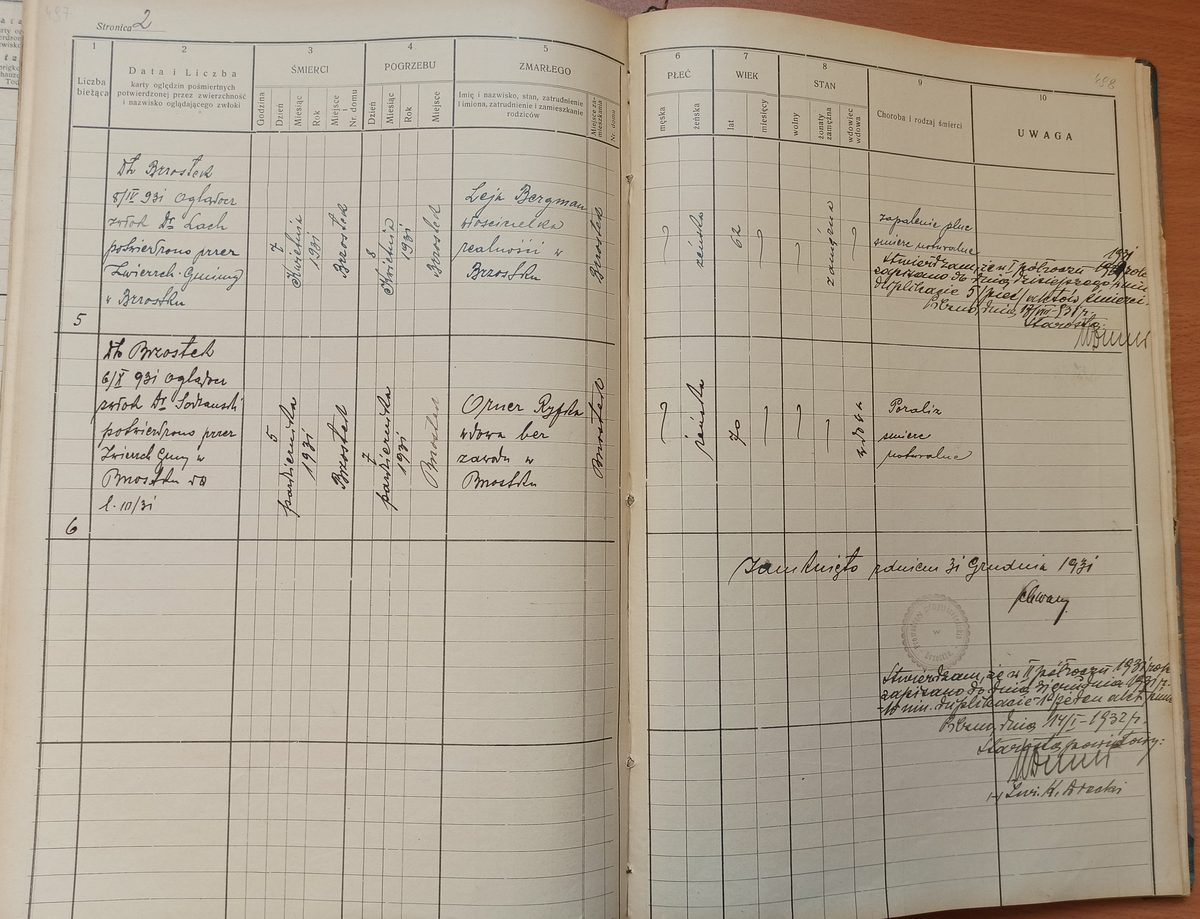 497
Stronica 2
1
Liczba
bieżąca
2
Data i Liczba
karty oględzin pośmiertnych
potwierdzonej przez zwierzchność
i nazwisko oglądającego zwłoki
3
ŚMIERCI
Godzina
Dzień
Miesiąc
Rok
Miejsce
Nr. domu
4
POGRZEBU
Dzień
Miesiąc
Rok
Miejsce
5
ZMARŁEGO
Imię i nazwisko, stan, zatrudnienie
i imiona, zatrudnienie i zamieszkanie
rodziców
Miejsce za-
mieszkania
Nr. domu
498
6
PŁEĆ
męska
żeńska
7
WIEK
lat
miesięcy
8
STAN
wolny
żonaty
zamężna
wdowiec
wdowa
9
Choroba i rodzaj śmierci
10
UWAGA
5
Dto Brzostek
8/IV 931 oglądacz
zwłok Dr Lach
potwierdzono przez
Zwierzch. Gminy
w Brzostku
7
Kwietnia
1931
Brzostek
8
Kwietnia
1931
Brzostek
Leja Bergman
włościcielka
realności w
Brzostku
Brzostek
żeńska
62
zamężna
zapalenie płuc
śmierć naturalna
Stwierdzam, że w I półroczu 1931 roku
zapisano do dnia dzisiejszego w nin.
duplikacie 5 /pięć/ aktów śmierci.
Pilzno, dnia 17/VIII-931 r.
Starosta:
6
Dto Brzostek
6/X 931 oglądacz
zwłok Dr
potwierdzono przez
Zwierzch Gminy w
Brzostku
l. 10/31
5
października
1931
Brzostek
7
października
1931
Brzostek
Ozner Ryfka
wdowa bez
zawodu w
Brzostku
Brzostek
żeńska
70
wdowa
Paraliż
śmierć
naturalna
Zamknięto z dniem 31 Grudnia 1931
Stwierdzam, że w II półroczu 1931 roku
zapisano do dnia 31 grudnia 1931 r.
w nin. duplikacie 1 jeden akt
Pilzno, dnia 14/I-1932 r.
Starosta powiatowy: